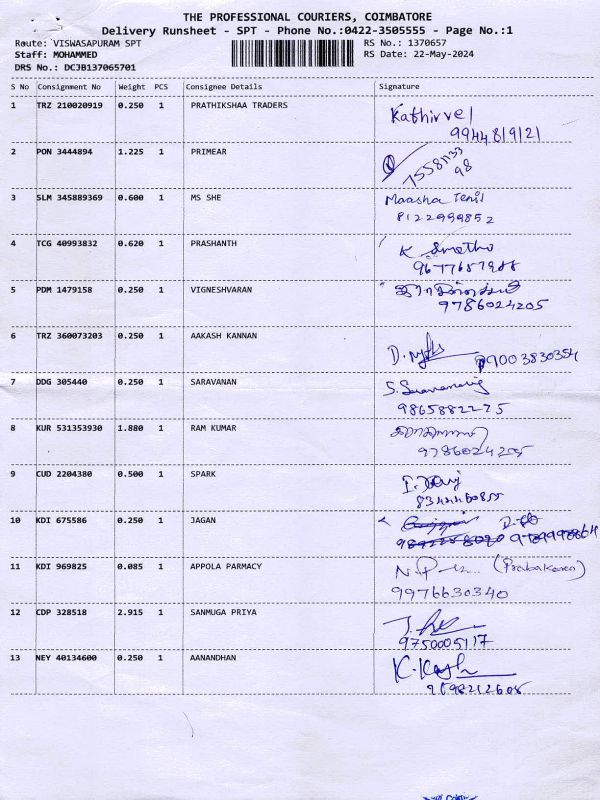 THE PROFESSIONAL COURIERS, COIMBATORE
Delivery Runsheet - SPT - Phone No.:0422-3505555 - Page No.:1
Route: VISWASAPURAM SPT RS No.: 1370657
Staff: MOHAMMED RS Date: 22-May-2024
DRS No.: DCJB137065701
S No Consignment No Weight PCS Consignee Details Signature
1 TRZ 210020919 0.250 1 PRATHIKSHAA TRADERS Kathirvel
9944819121
2 PON 3444894 1.225 1 PRIMEAR
3 SLM 345889369 0.600 1 MS SHE Maasha
8122999852
4 TCG 40993832 0.620 1 PRASHANTH K
9677687988
5 PDM 1479158 0.250 1 VIGNESHVARAN
9786024205
6 TRZ 360073203 0.250 1 AAKASH KANNAN D.
9003830354
7 DDG 305440 0.250 1 SARAVANAN S.
9865882275
8 KUR 531353930 1.880 1 RAM KUMAR
9786024205
9 CUD 2204380 0.500 1 SPARK
8344460855
10 KDI 675586 0.250 1 JAGAN
11 KDI 969825 0.085 1 APPOLA PARMACY (Prabakaran)
9976630340
12 CDP 328518 2.915 1 SANMUGA PRIYA
9750005117
13 NEY 40134600 0.250 1 AANANDHAN